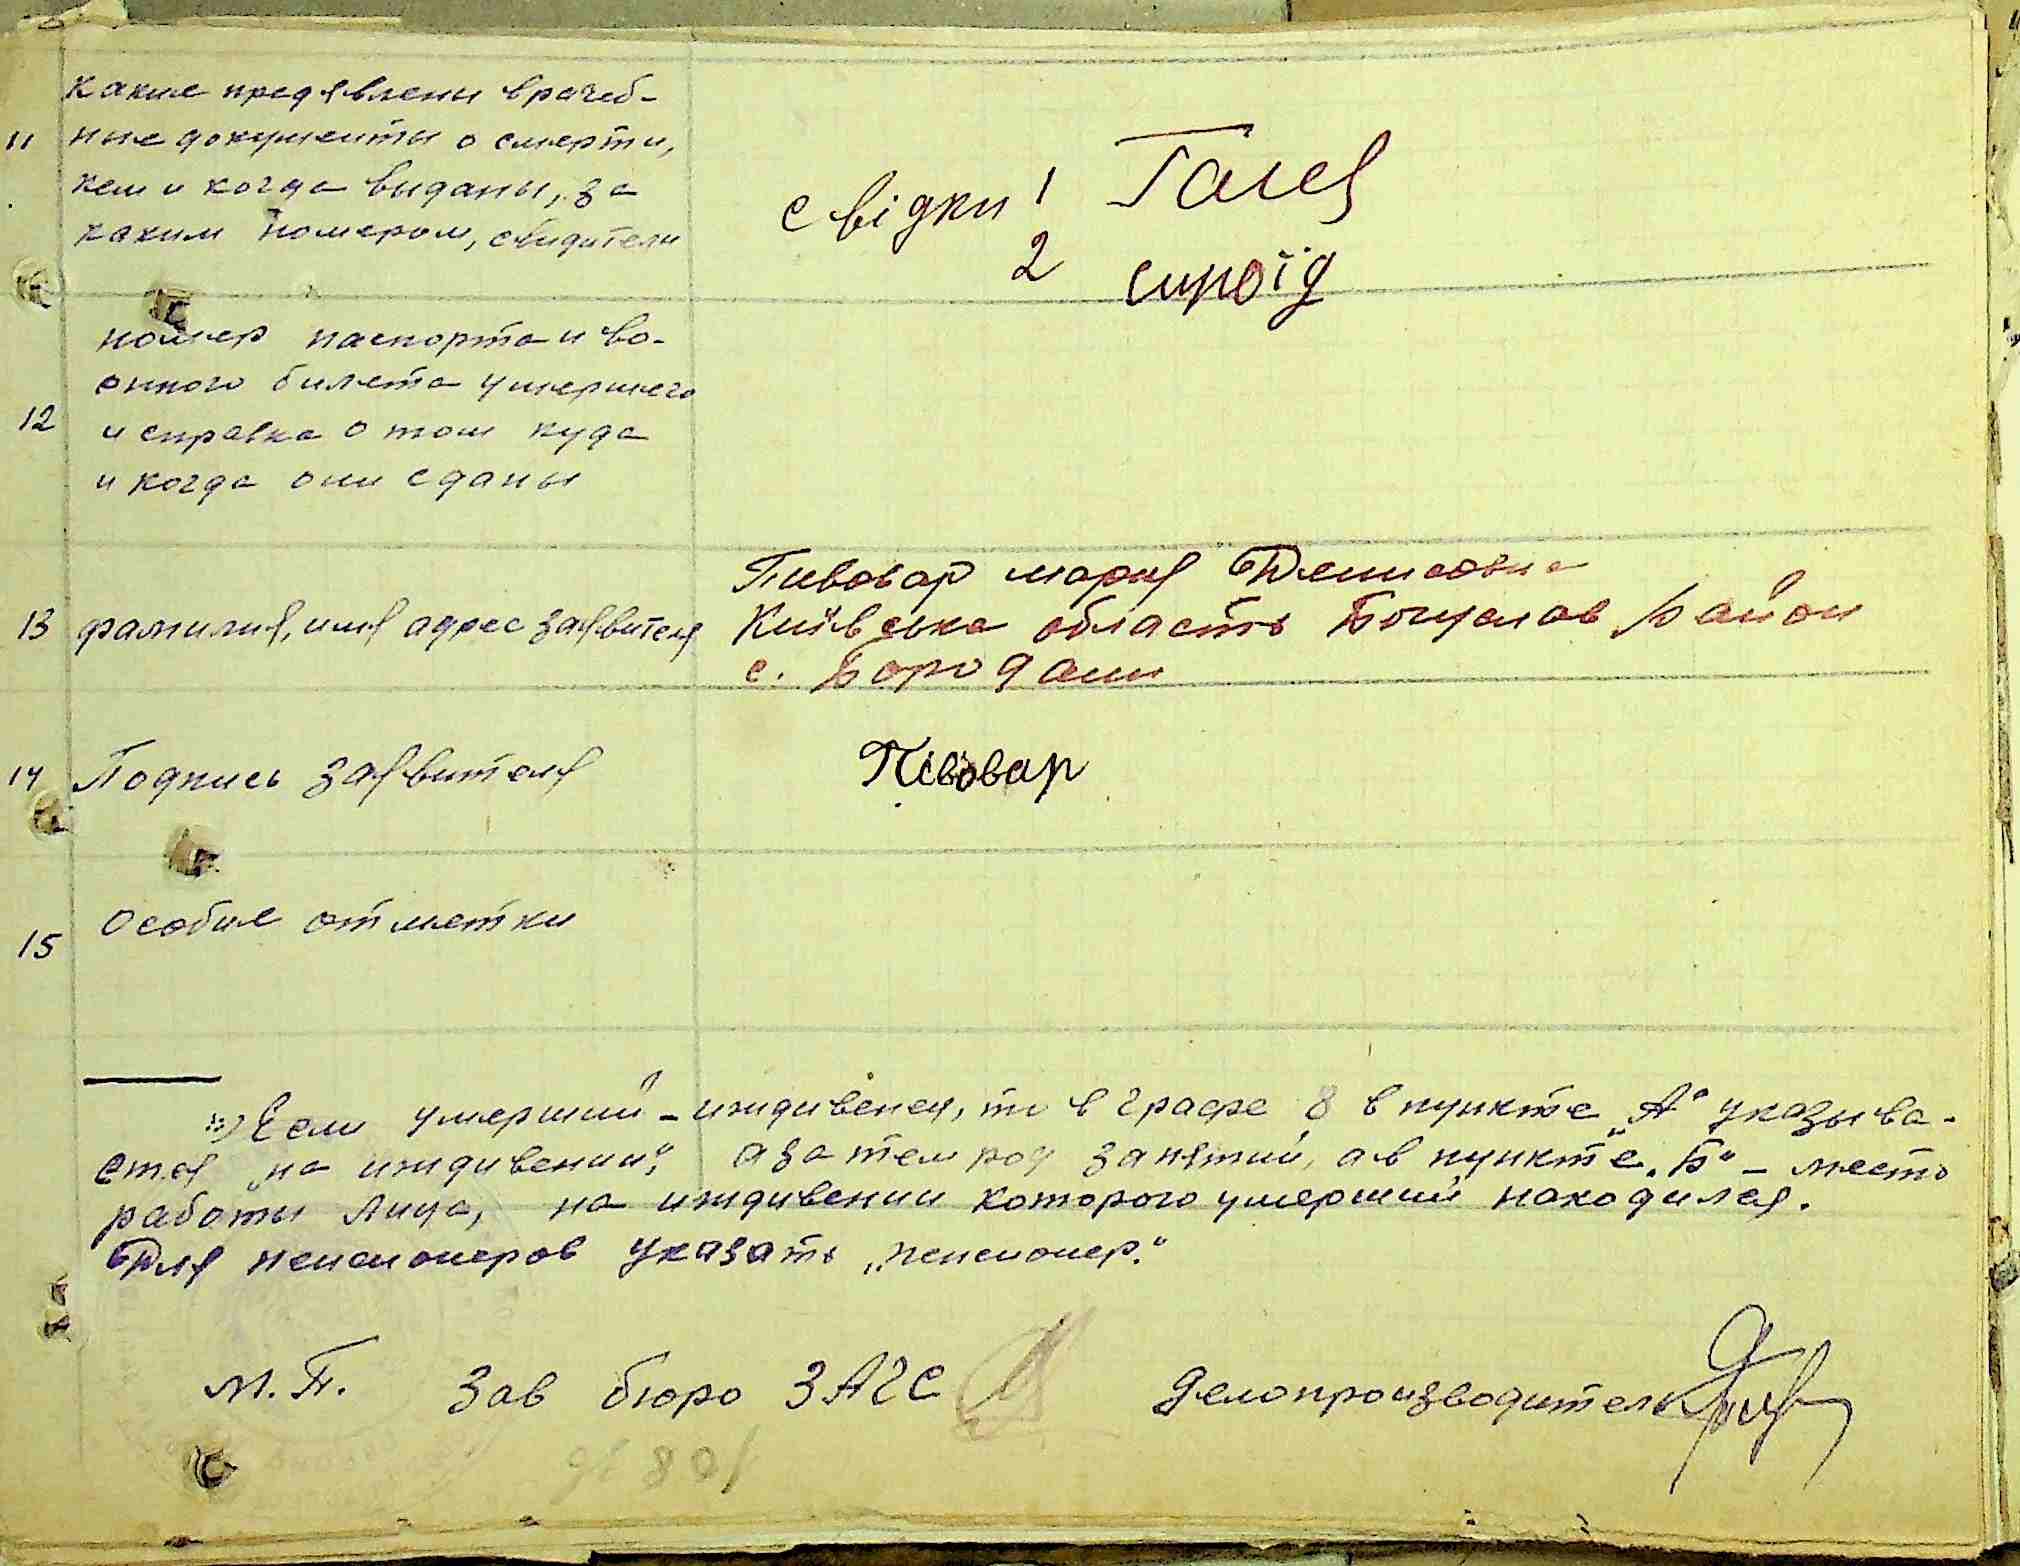 какие предявлены врачеб-
11 ные документы о смерти,
кем и когда выданы, за
каким номером, свидители
свідки 1
2 сироїд
номер паспорта и во-
енного билета умершего
12 и справка о том куда
и когда они сданы
Пивовар мария Денисовна
13 фамилия, имя адрес заявителя Київська область Богуслав район
с. Бородани
14 Подпись заявителя Півовар
15 Особие отметки
*) Если умерший - иждивенец, то в графе 8 в пункте „А" указыва-
ется „на иждивении", а затем род занятий, а в пункте „Б" - место
работы лица, на иждивении которого умерший находился.
Для пенсионеров указать „пенсионер."
М.П. Зав бюро ЗАГС делопроизводитель